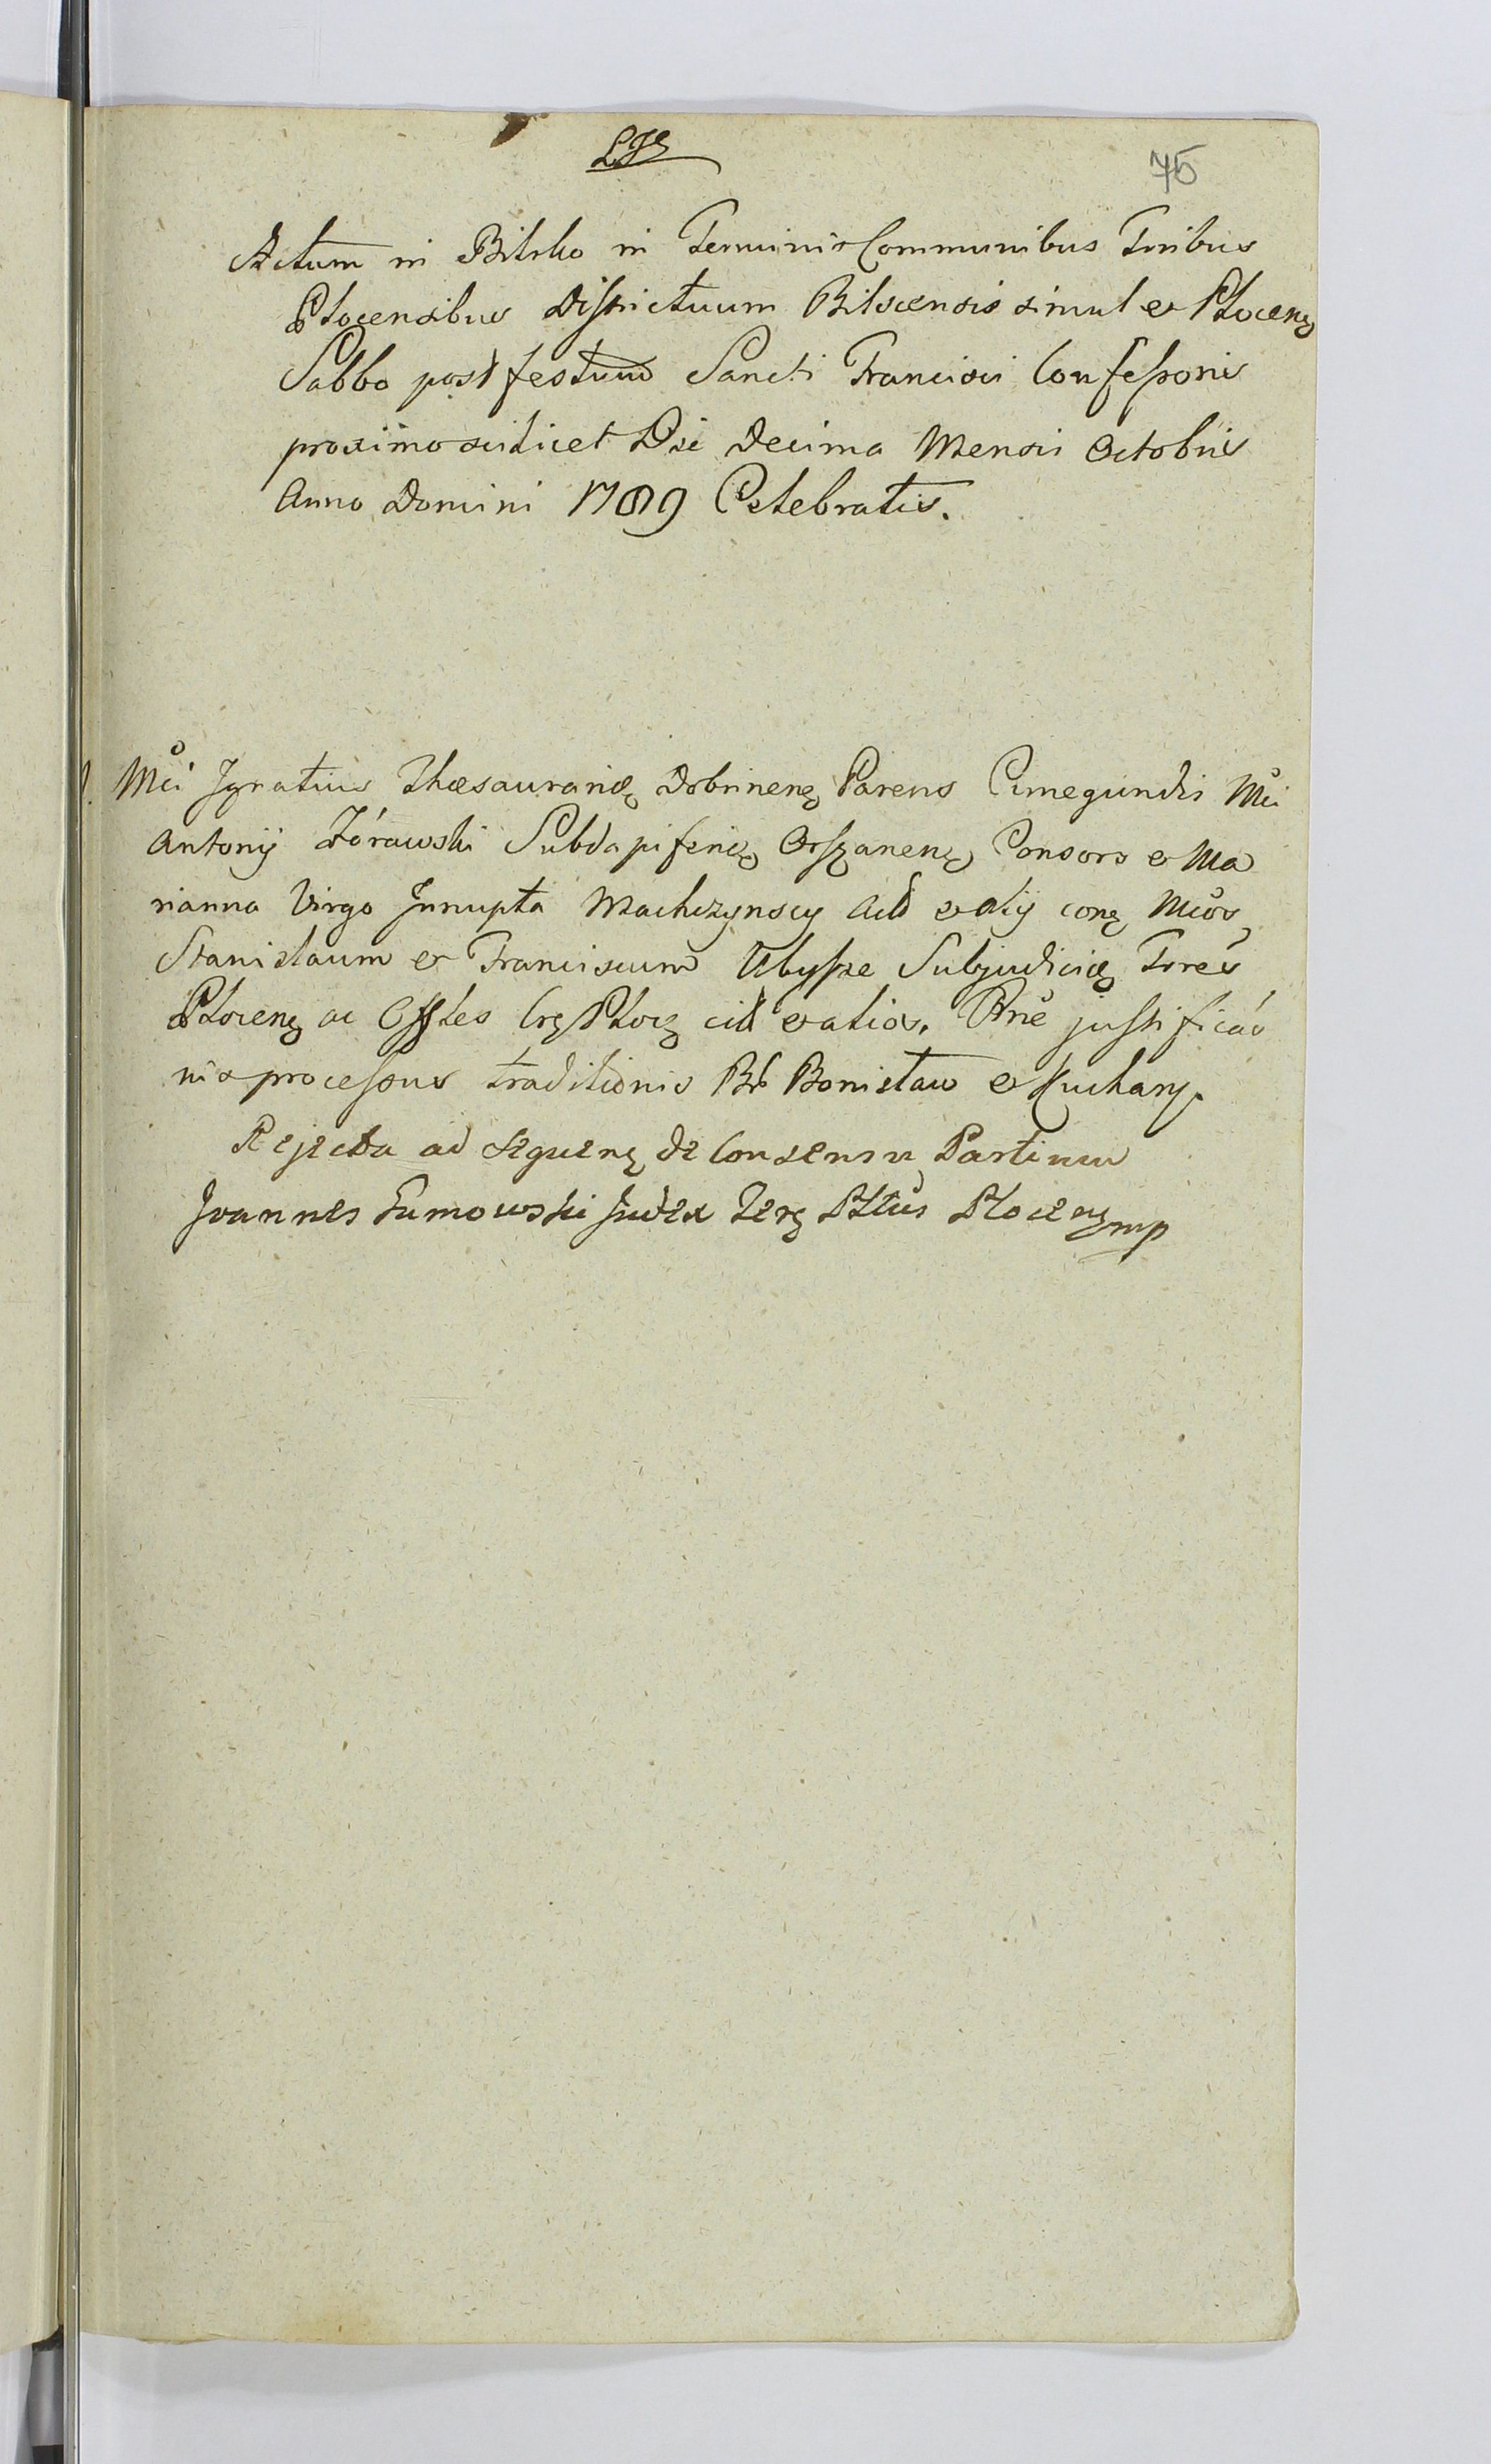 75
Actum in Bilsko in Terminis Communibus Tribus
Plocensibus Districtuum Bilscensis simul et Plocens
Sabbo post festum Sancti Francisci Confessoris
proximo scilicet Die Decima Mensis Octobris
Anno Domini 1789 Celebratis.
1. Mci Ignatius Thesaurarids Dobrinens Parens Cunegundis Mci
Antonij Żórawski Subdapiferids Orszanens Consors et Ma
rianna Virgo Innupta Machczynscy Act et alij cons Mcos
Stanislaum et Franciscum Ubysze Subjudicids Trres
Plocens ac Offles Crs Ploc cit et alios. Rne justificao
nis processus traditionis Br Bonislaw et Kuchary.
Rejecta ad sequens de Consensu Partium
Joannes Tumowski Judex Ters Pltus Plocens mp